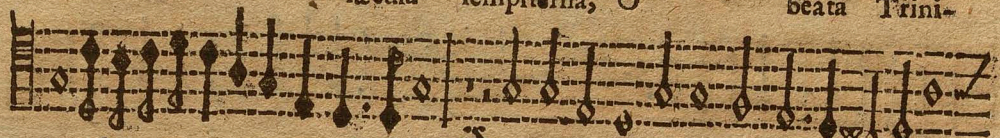 sempiterna, O beata Trini-